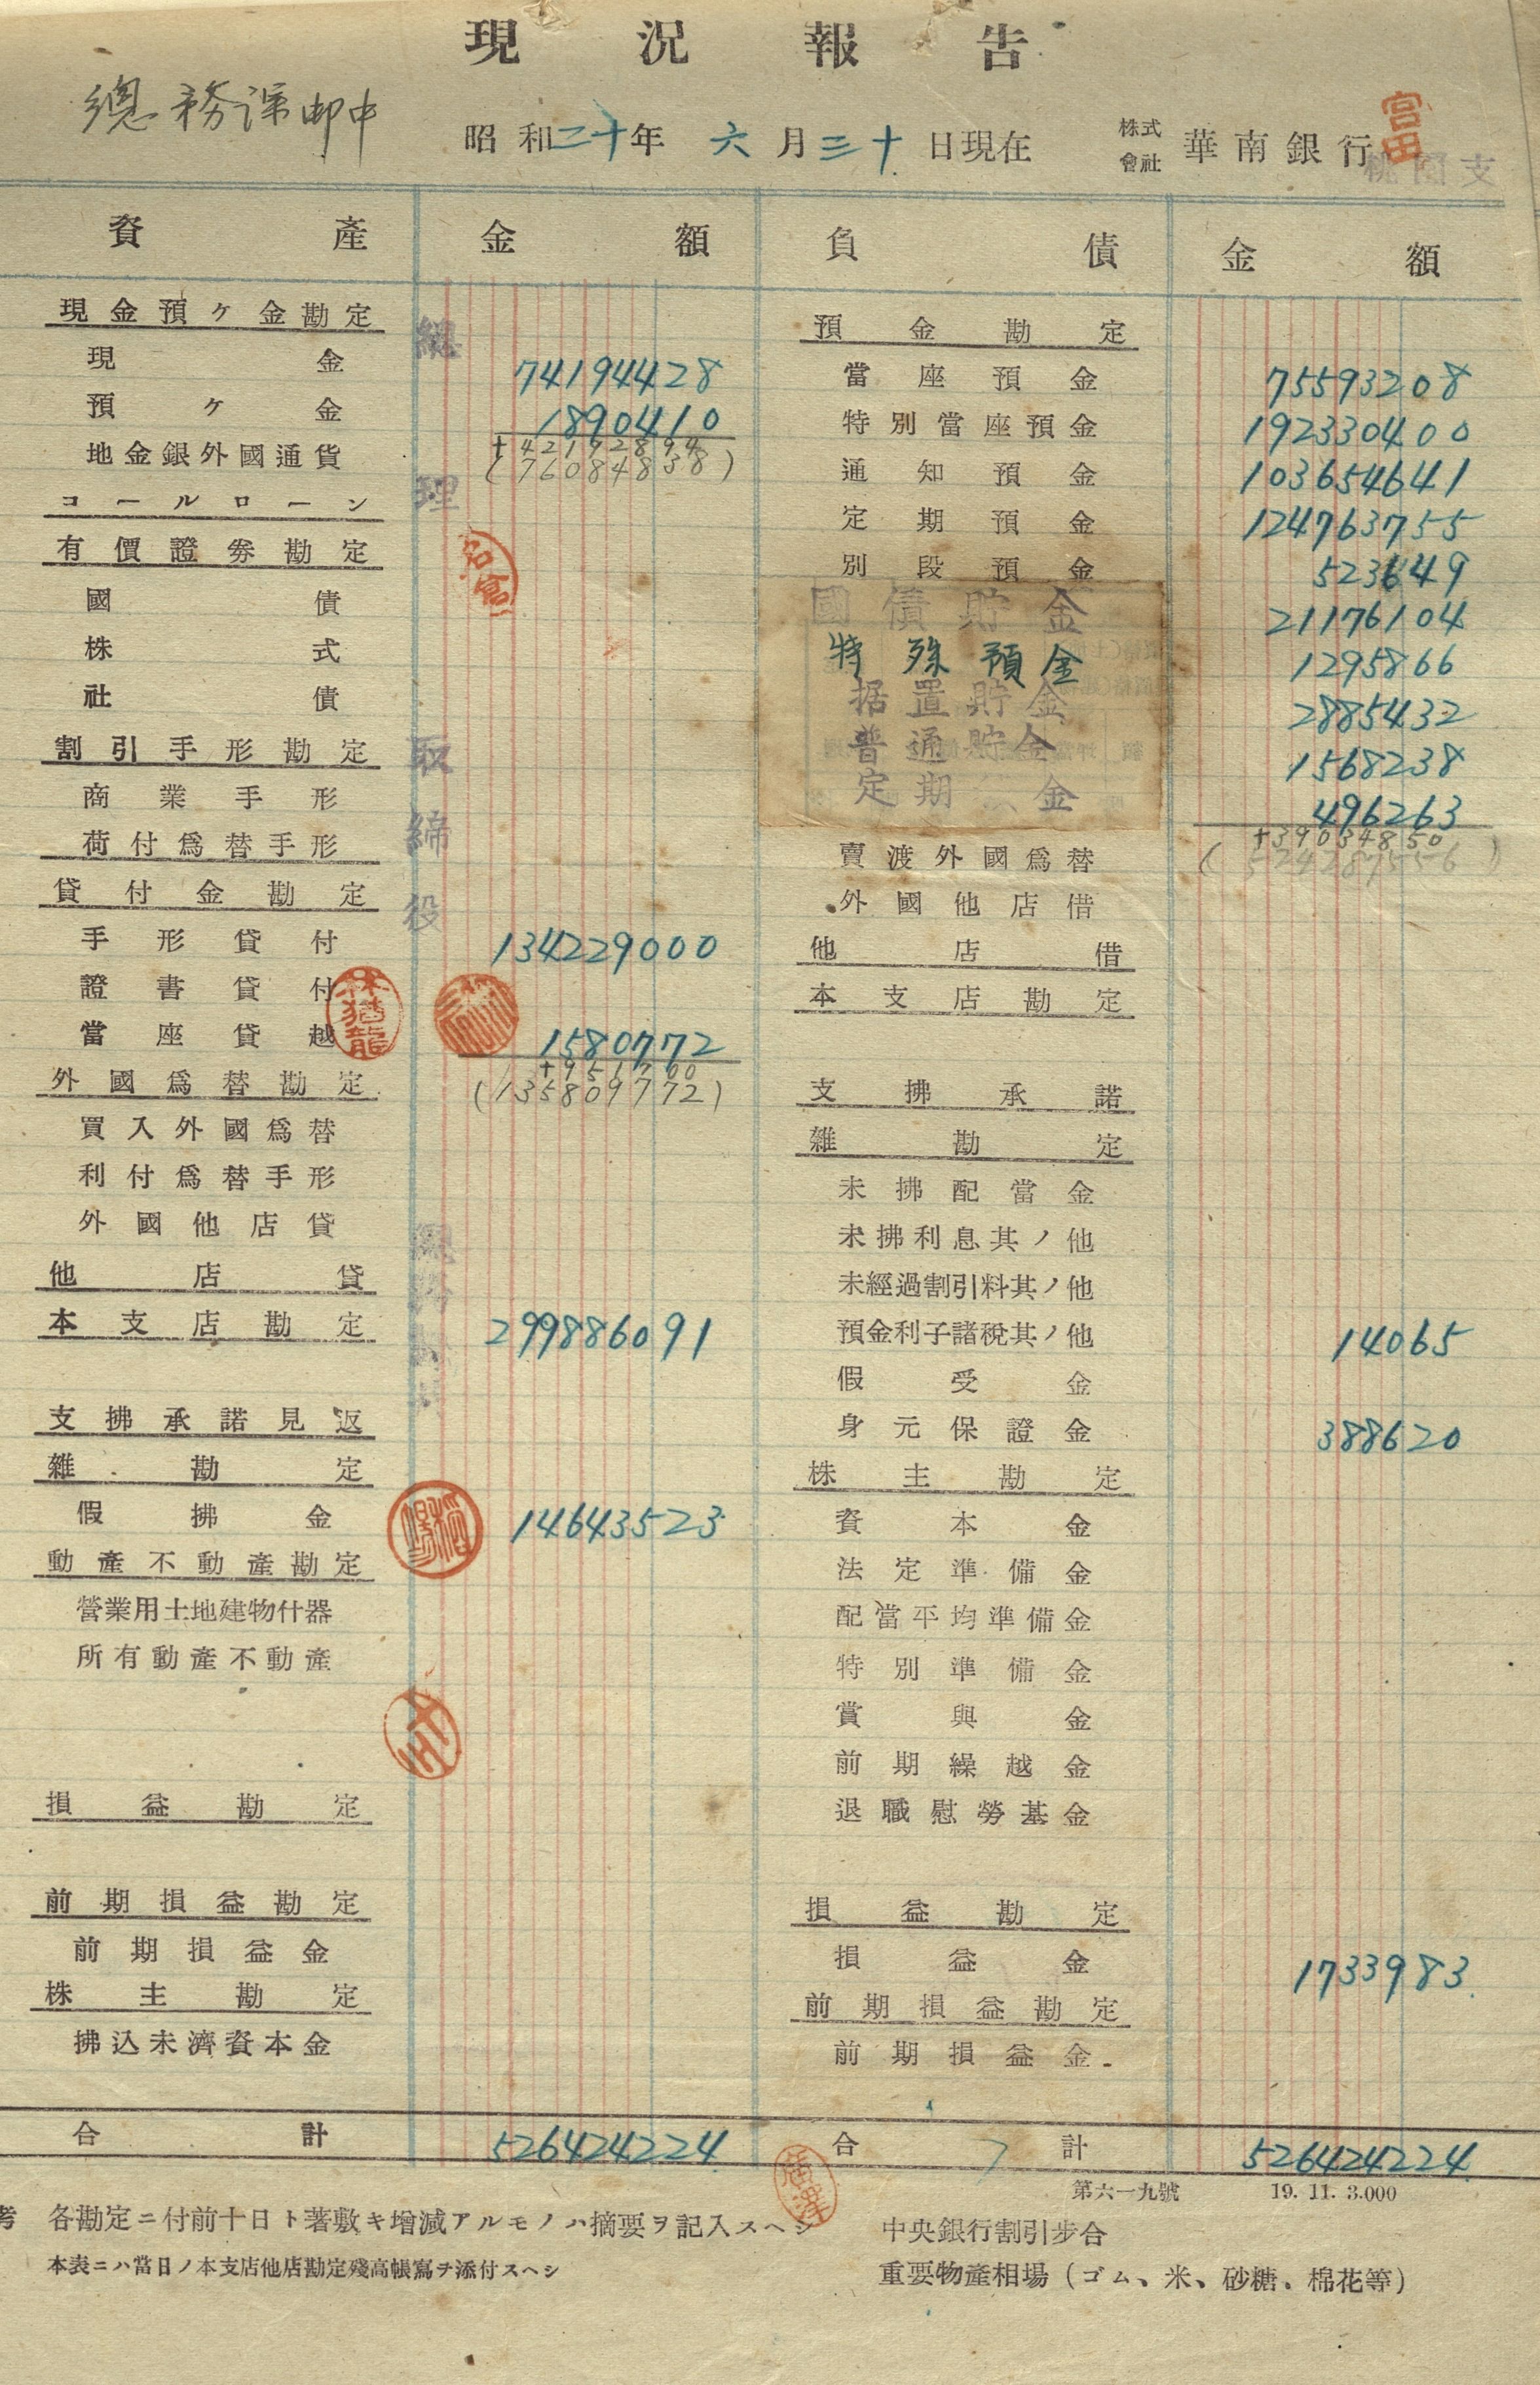 現況報告
總務課御中
昭和二十年六月三十日現在
株式會社 華南銀行 桃園支
富田
資產 金額 負債 金額
現金預ケ金勘定
現金 74194428
預ケ金 1890410
+42192894
地金銀外國通貨 (76084838)
コールローン
有價證券勘定
國債
株式
社債
割引手形勘定
商業手形
荷付爲替手形
貸付金勘定
手形貸付 134229000
證書貸付
當座貸越 1580772
+951700
外國爲替勘定 (135809772)
買入外國爲替
利付爲替手形
外國他店貸
他店貸
本支店勘定 299886091
支拂承諾見返
雜勘定
假拂金 14643523
動產不動產勘定
營業用土地建物什器
所有動產不動產
損益勘定
前期損益勘定
前期損益金
株主勘定
拂込未濟資本金
合計 526424224
總理
取締役
名倉
林猶龍
預金勘定
當座預金 75593208
特別當座預金 192330400
通知預金 103654641
定期預金 124763755
別段預金 523649
國債貯金 21176104
特殊預金 1295866
据置貯金 2885432
普通貯金 1568238
定期 金 496263
+39034850
賣渡外國爲替 (524287556)
外國他店借
他店借
本支店勘定
支拂承諾
雜勘定
未拂配當金
未拂利息其ノ他
未經過割引料其ノ他
預金利子諸稅其ノ他 14065
假受金
身元保證金 388620
株主勘定
資本金
法定準備金
配當平均準備金
特別準備金
賞與金
前期繰越金
退職慰勞基金
損益勘定
損益金 1733983
前期損益勘定
前期損益金
合計 526424224
第六一九號 19. 11. 3.000
考 各勘定ニ付前十日ト著敷キ增減アルモノハ摘要ヲ記入スヘシ
本表ニハ當日ノ本支店他店勘定殘高帳寫チ添付スヘシ
中央銀行割引步合
重要物產相場(ゴム、米、砂糖、棉花等)